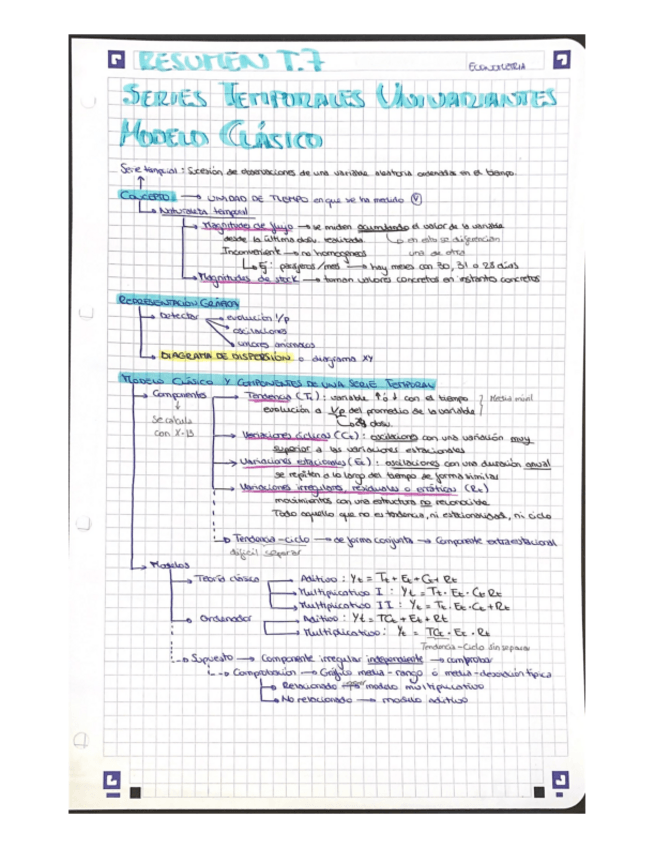 RESUMEN T.7
ECONOMETRÍA
SERIES TEMPORALES UNIVARIANTES
MODELO CLÁSICO
Serie temporal : Sucesión de observaciones de una variable aleatoria ordenadas en el tiempo.
CONCEPTO → UNIDAD DE TIEMPO en que se ha medido
Naturaleza temporal
Magnitudes de flujo → se miden acumulando el valor de la variable
desde la última observ. realizada. en esto se diferencian
Inconveniente → no homogéneas una de otra
Ej: pasajeros/mes → hay meses con 30, 31 o 28 días
Magnitudes de stock → toman valores concretos en instantes concretos
REPRESENTACIÓN GRÁFICA
Detectar → evolución l/p
oscilaciones
valores anómalos
DIAGRAMA DE DISPERSIÓN o diagrama XY
MODELO CLÁSICO Y COMPONENTES DE UNA SERIE TEMPORAL
Componentes → Tendencia (Tt) : variable ↑ ó ↓ con el tiempo
evolución a l/p del promedio de la variable
Se calcula
con X-13
Variaciones cíclicas (Ct) : oscilaciones con una variación muy
superior a las variaciones estacionales
Variaciones estacionales (Et) : oscilaciones con una duración anual
se repiten a lo largo del tiempo de forma similar
Variaciones irregulares, residuales o erráticas (Rt)
movimientos con una estructura no reconocible
Todo aquello que no es tendencia, ni estacionalidad, ni ciclo
Tendencia-ciclo → de forma conjunta → Componente extraestacional
difícil separar
Modelos
Teoría clásica → Aditivo : Yt = Tt + Et + Ct + Rt
Multiplicativo I : Yt = Tt · Et · Ct · Rt
Multiplicativo II : Yt = Tt · Et · Ct + Rt
Ordenador → Aditivo : Yt = TCt + Et + Rt
Multiplicativo : Yt = TCt · Et · Rt
Tendencia-Ciclo sin separar
Supuesto → Componente irregular independiente → comprobar
Comprobación → Gráfico media-rango ó media-desviación típica
Relacionado → modelo multiplicativo
No relacionado → modelo aditivo